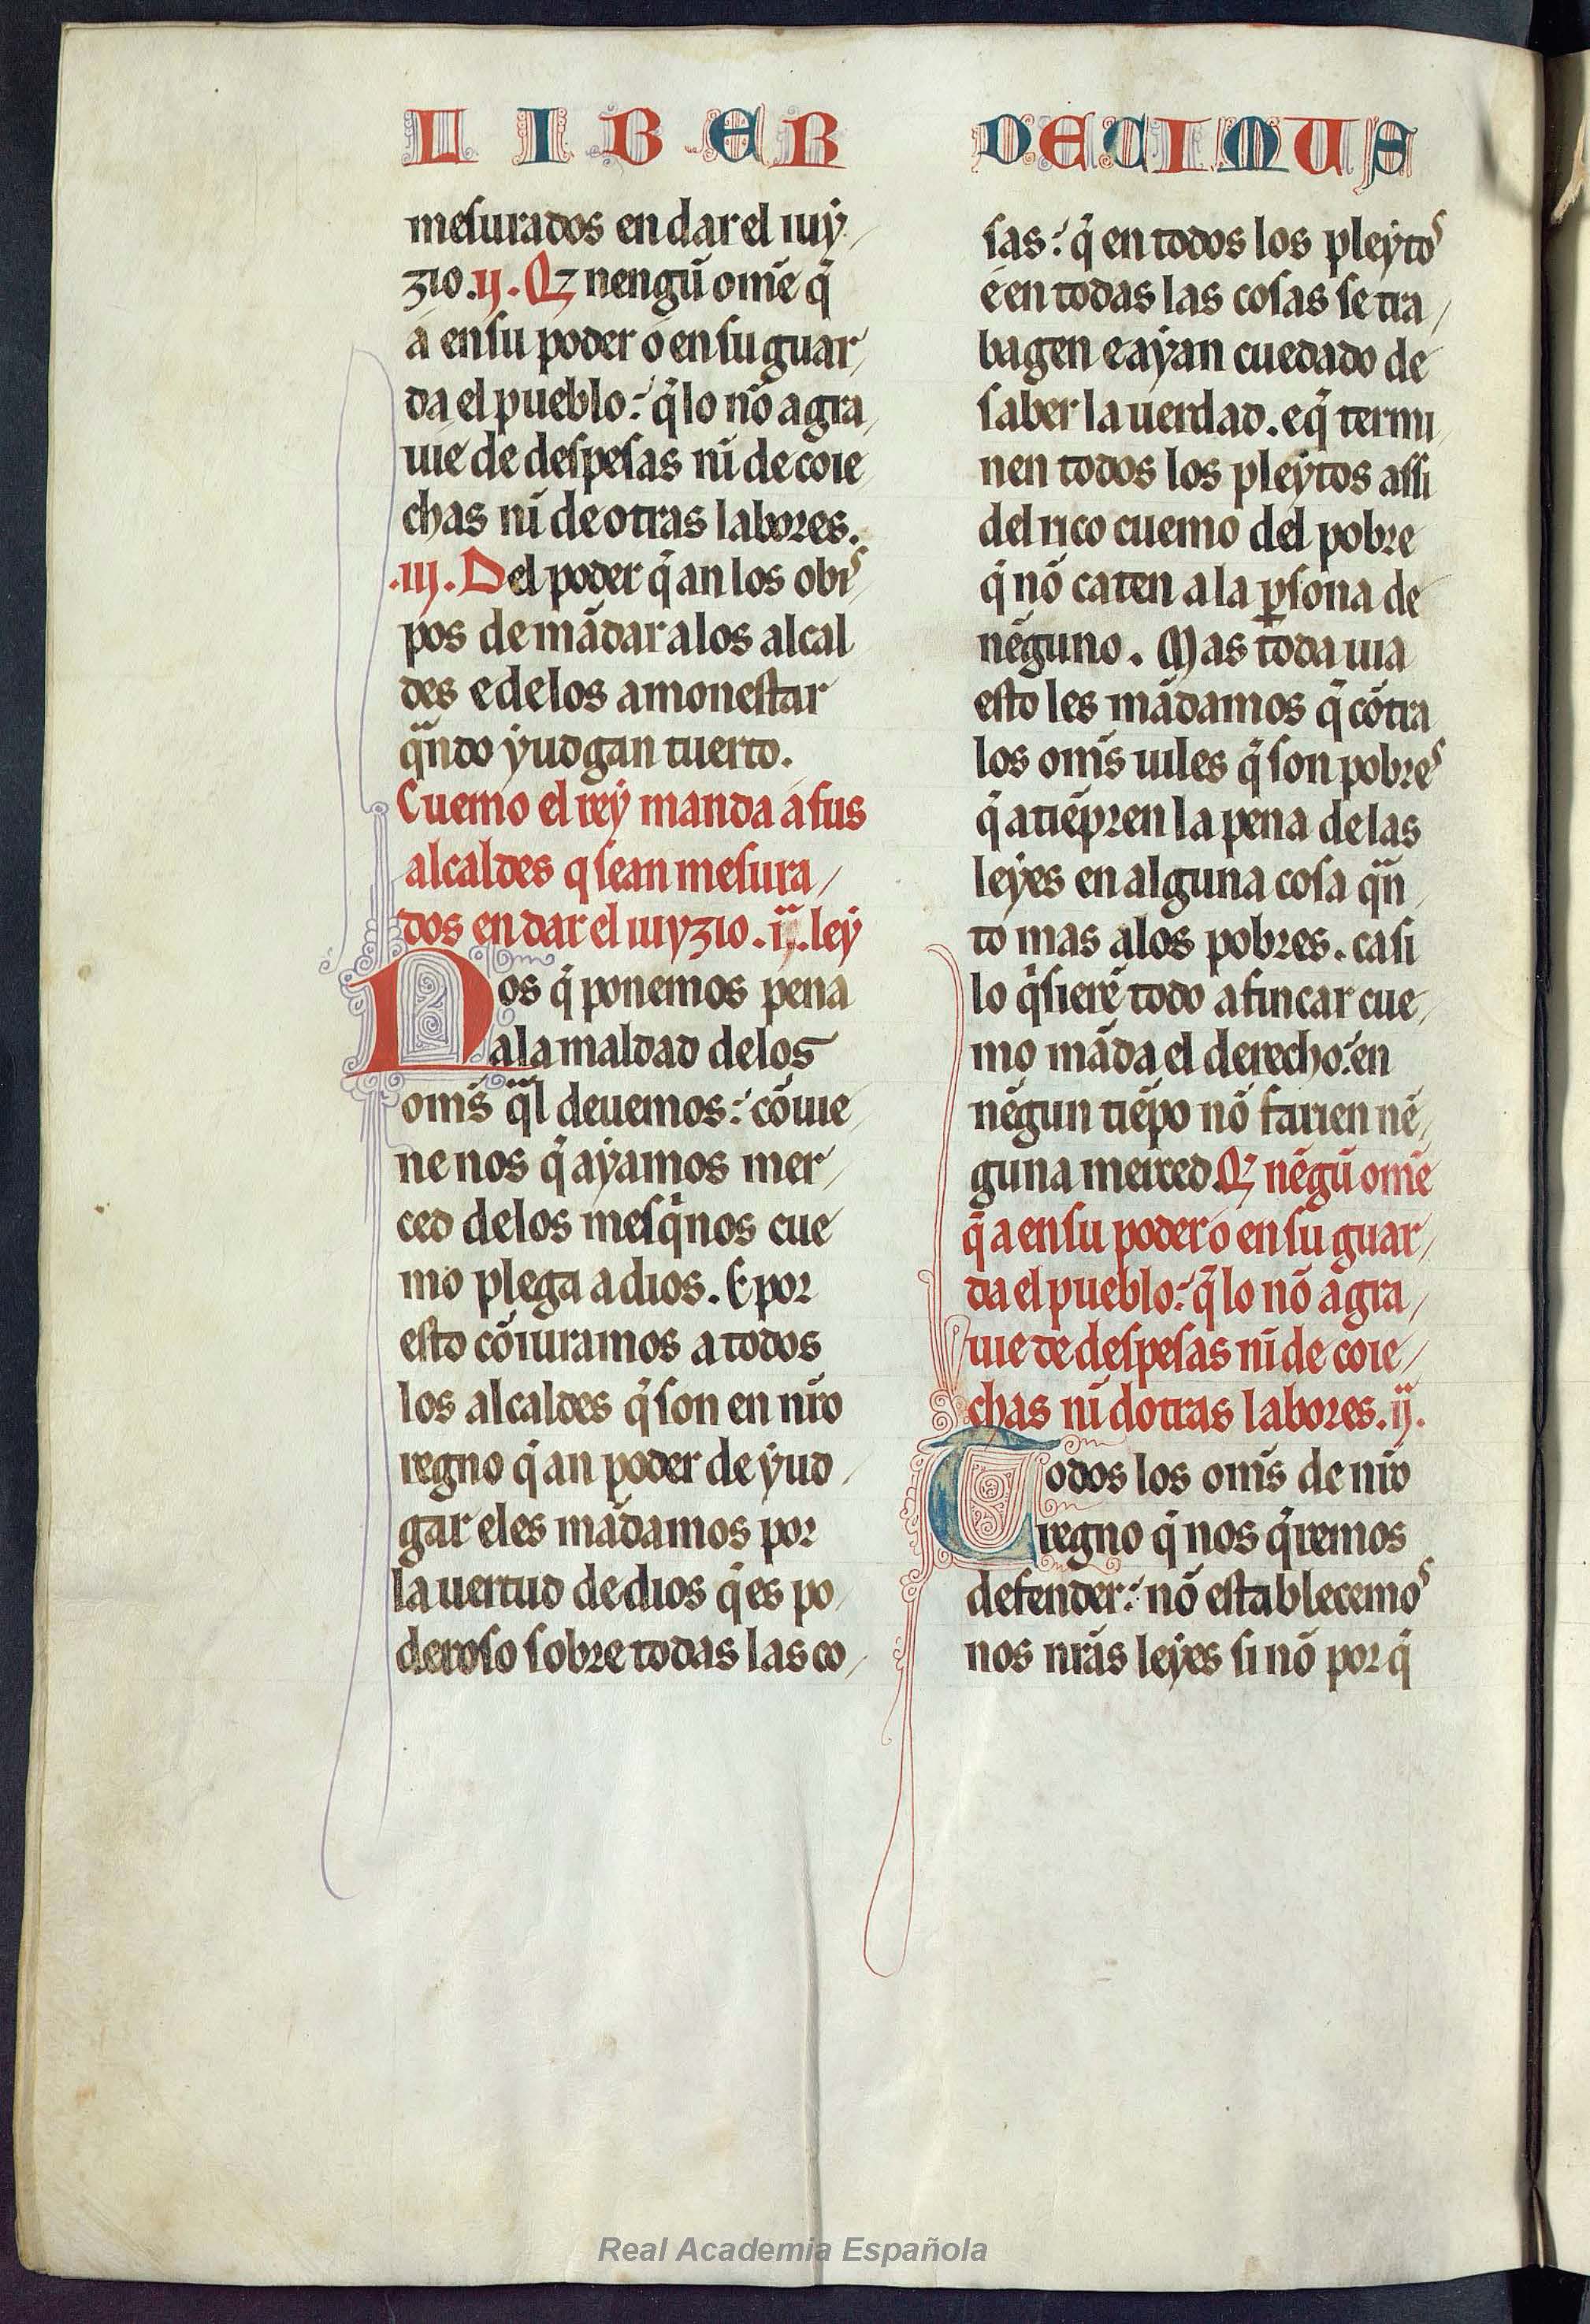 LIBER DECIMUS
mesurados en dar el iuy
zio .ij. Qz nengũ om̃e q̃
a en su poder o en su guar
da el pueblo: q̃ lo nõ agra
uie de despesas nĩ de coie
chas nĩ de otras labores.
.iij. Del poder q̃ an los obis
pos de mãdar a los alcal
des e de los amonestar
qñdo yudgan tuerto.
Cuemo el rey manda a sus
alcaldes q sean mesura
dos en dar el iuyzio .iª. ley
Nos q̃ ponemos pena
a la maldad de los
om̃s q̃l deuemos: cõuie
ne nos q̃ ayamos mer
ced de los mesq̃nos cue
mo plega a dios. E por
esto cõiuramos a todos
los alcaldes q̃ son en nr̃o
regno q̃ an poder de yud
gar e les mãdamos por
la uertud de dios q̃ es po
deroso sobre todas las co
sas: q̃ en todos los pleytos
e en todas las cosas se tra
bagen e ayan cuedado de
saber la uerdad. e q̃ termi
nen todos los pleytos assi
del rico cuemo del pobre
q̃ nõ caten a la p̱sona de
nẽguno. Mas toda uia
esto les mãdamos q̃ cõtra
los om̃s uiles q̃ son pobres
q̃ atiẽpren la pena de las
leyes en alguna cosa qñ
to mas a los pobres. ca si
lo q̃sierẽ todo afincar cue
mo mãda el derecho: en
nẽgun tiẽpo nõ farien nẽ
guna merced. Qz nẽgũ om̃e
q̃ a en su poder o en su guar
da el pueblo: q̃ lo nõ agra
uie de despesas nĩ de coie
chas nĩ dotras labores. ij.
Todos los om̃s de nr̃o
regno q̃ nos q̃remos
defender: nõ establecemos
nos nr̃as leyes si nõ por q̃
Real Academia Española